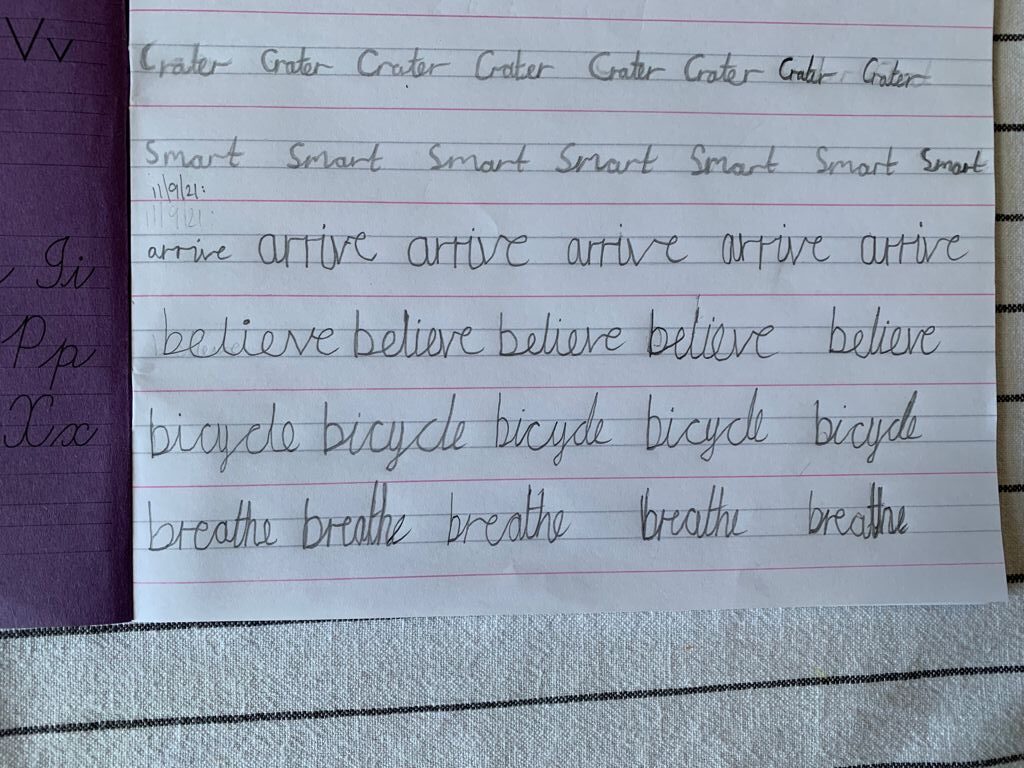 Vv
Crater Crater Crater Crater Crater Crater Crater Crater
Smart Smart Smart Smart Smart Smart Smart
11/9/21:
11/9/21:
Ii
arrive arrive arrive arrive arrive arrive
Pp
believe believe believe believe believe
Xx
bicycle bicycle bicycle bicycle bicycle
breathe breathe breathe breathe breathe